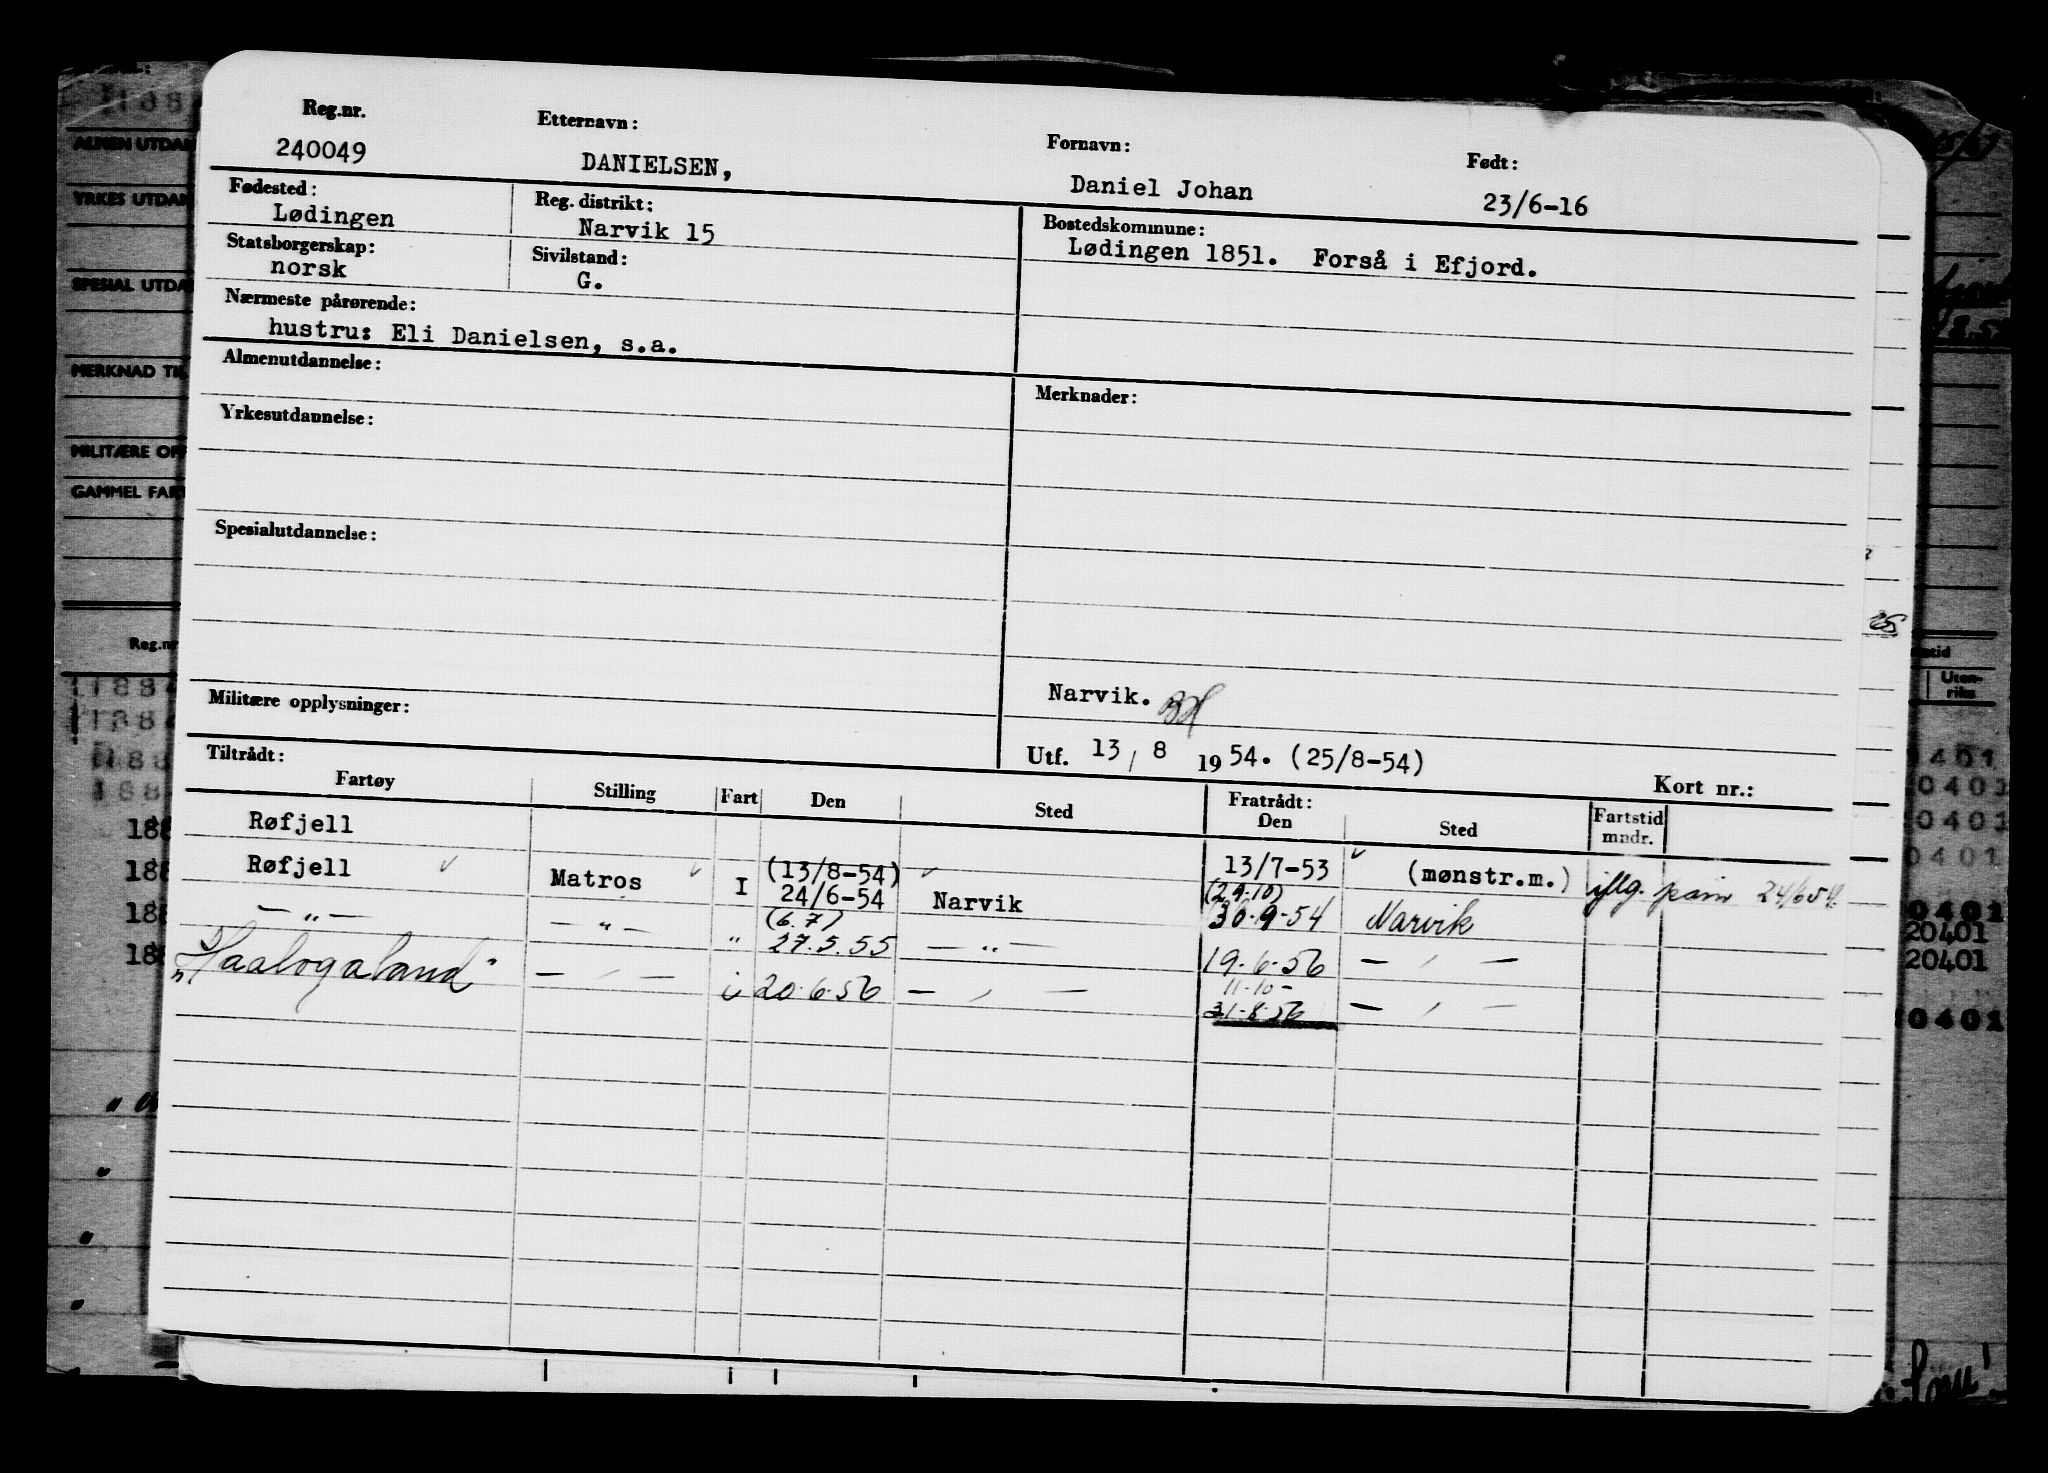 Reg.nr. Etternavn: Fornavn: Født:
240049 DANIELSEN, Daniel Johan 23/6-16
Fødested: Reg. distrikt: Bostedskommune:
Lødingen Narvik 15 Lødingen 1851. Forså i Efjord.
Statsborgerskap: Sivilstand:
norsk G.
Nærmeste pårørende:
hustru: Eli Danielsen, s.a.
Almenutdannelse: Merknader:
Yrkesutdannelse:
Spesialutdannelse:
Militære opplysninger: Narvik.
Utf. 13 / 8 1954. (25/8-54)
Tiltrådt: Kort nr.:
Fartøy Stilling Fart Den Sted Fratrådt: Den Sted Fartstid mndr.
Røfjell
Røfjell Matros I (13/8-54) 24/6-54 Narvik 13/7-53 (mønstr.m.)
— „ — — „ — „ (6.7) 27.5.55 — „ — (29.10) 30.9.54 Narvik
"Haalogaland" — „ — i 20.6.56 — „ — 19.6.56 — „ —
11-10- 31.8.56 — „ —
ALMEN UTDAN
YRKES UTDAN
SPESIAL UTDA
MERKNAD TIL
MILITÆRE OPP
GAMMEL FART
Reg.nr
Uten-
riks
0401
20401
20401
0401